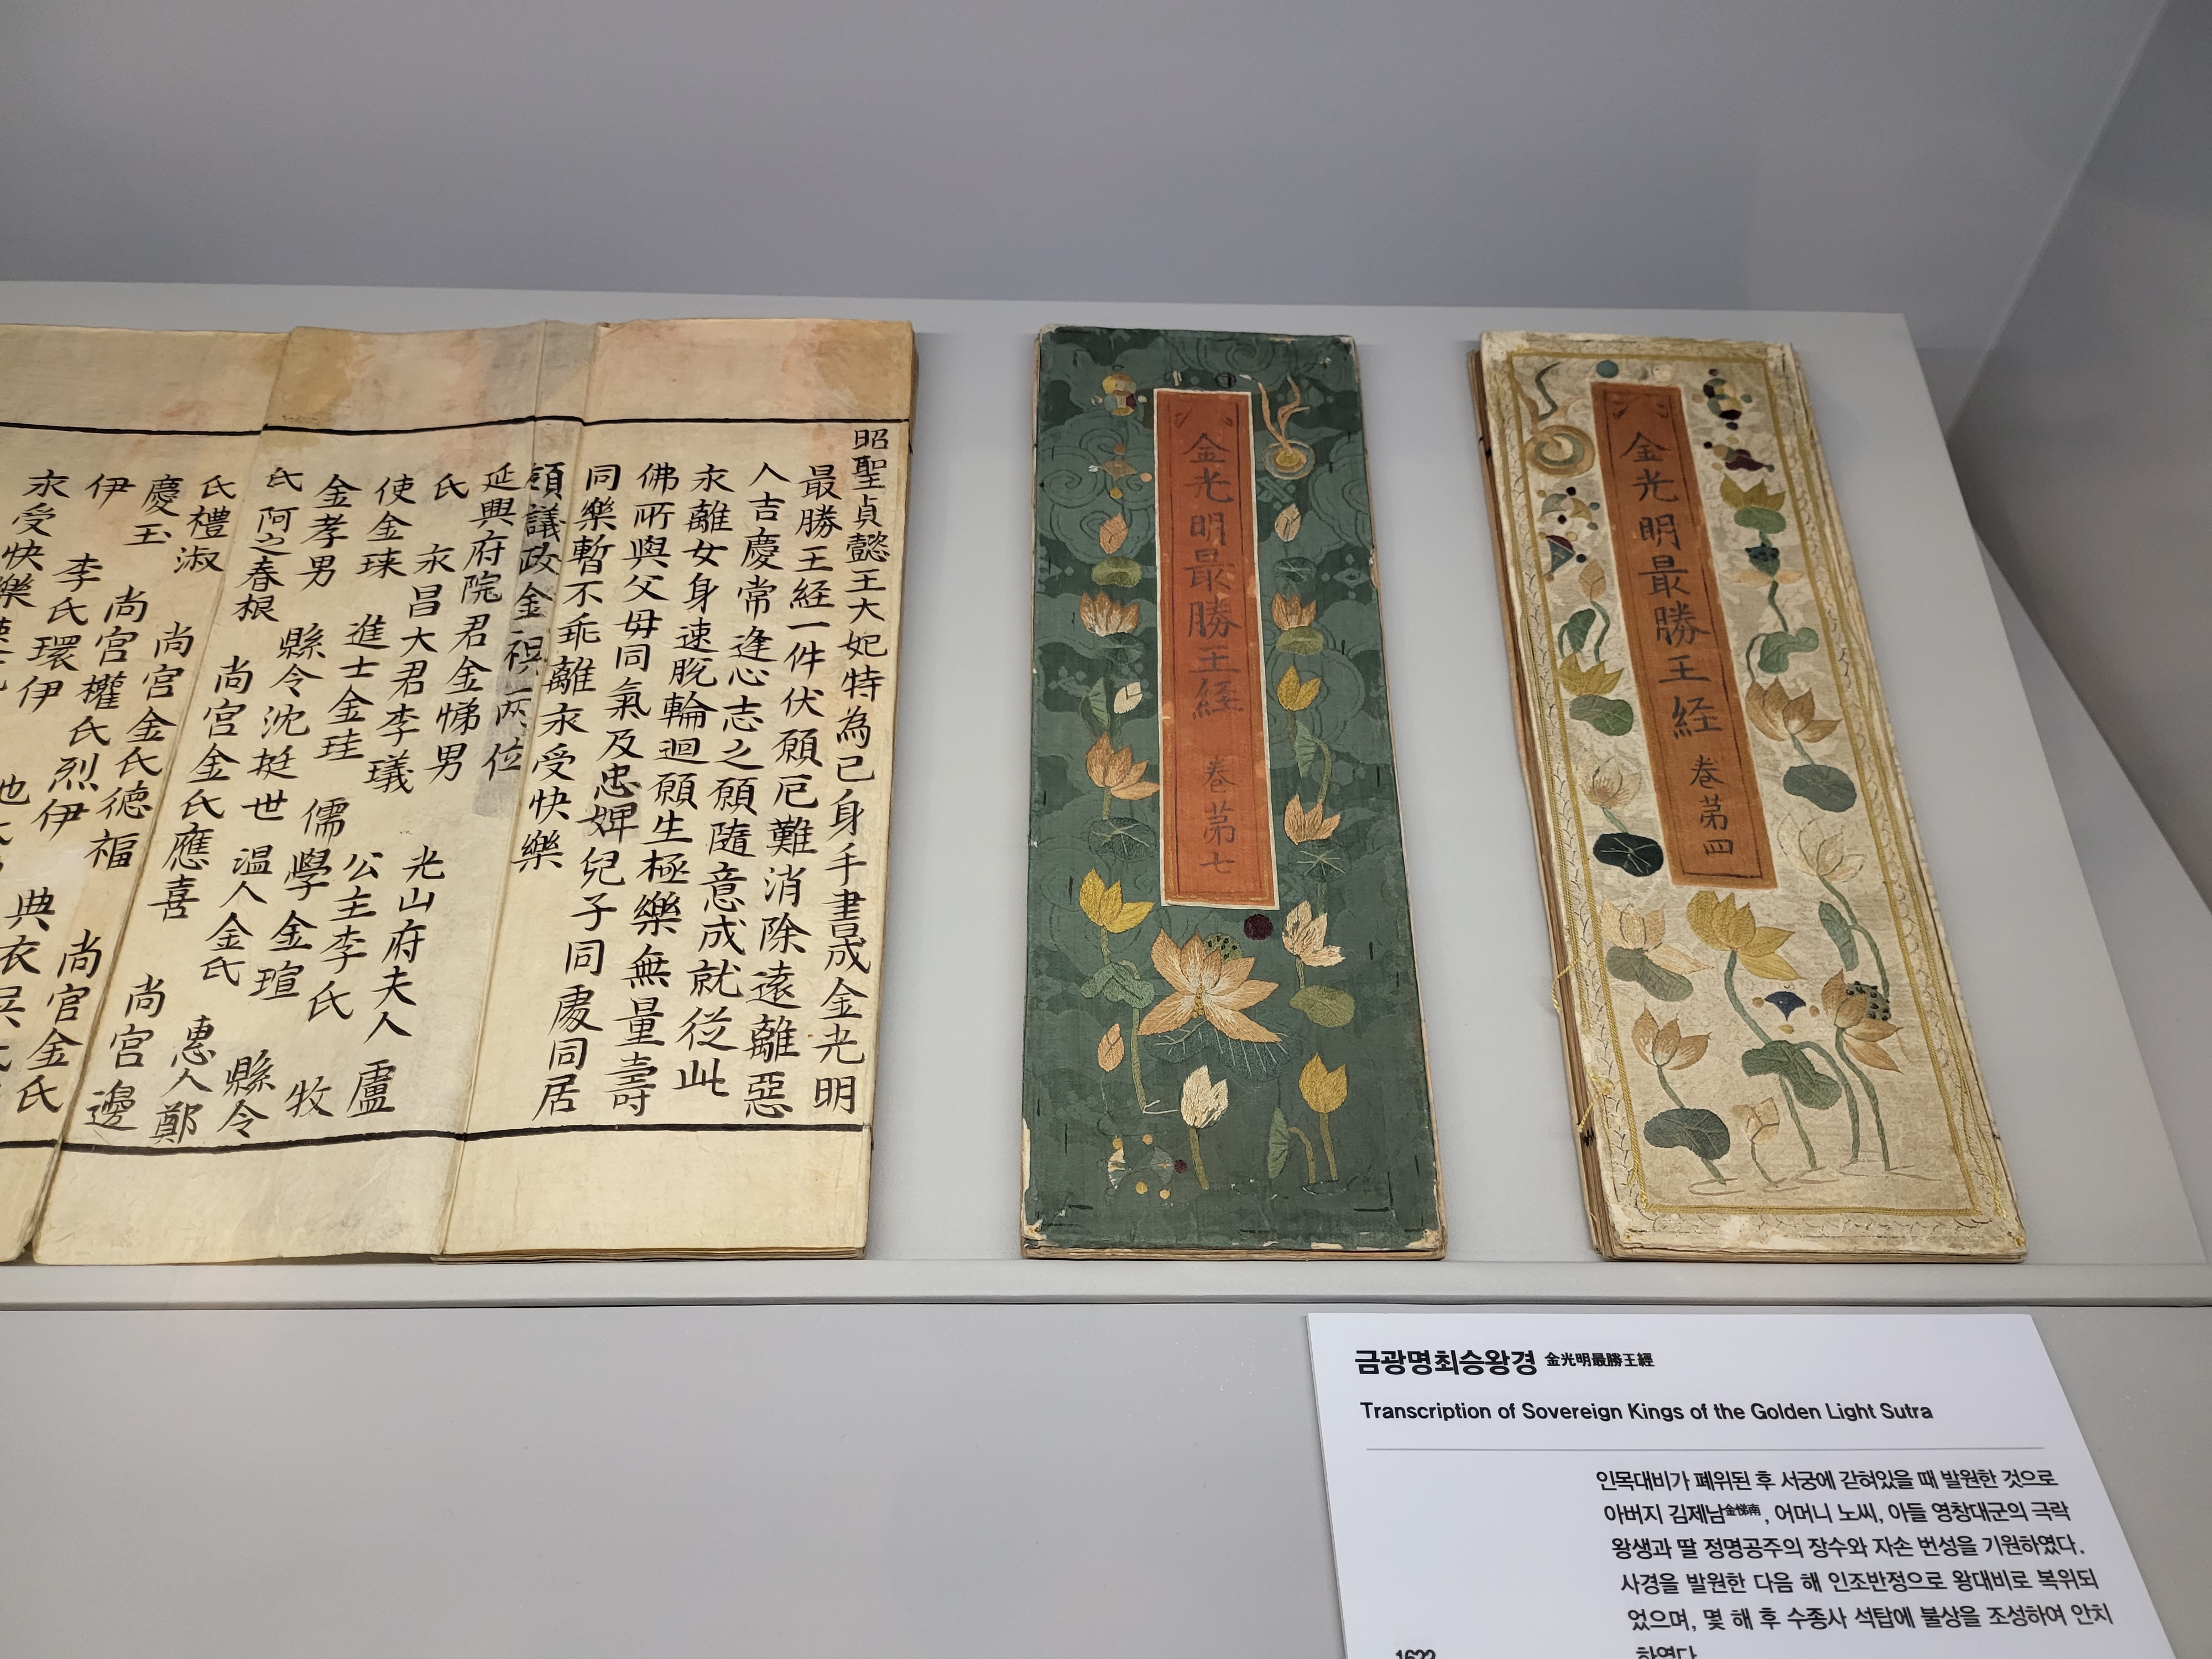 昭聖貞懿王大妃特為己身手書成金光明
最勝王経一件伏願厄難消除遠離惡
人吉慶常逢心志之願隨意成就從此
永離女身速脫輪迴願生極樂無量壽
佛所與父母同氣及忠婢兒子同處同居
同樂暫不乖離永受快樂
領議政金 兩位
延興府院君金悌男 光山府夫人盧
氏 永昌大君李㼁 公主李氏 牧
使金琜 進士金珪 儒學金瑄 縣令
金孝男 縣令沈挻世 温人金氏 惠人鄭
氏阿之春根 尚宮金氏應喜 尚宮邊
氏禮淑 尚宮金氏德福 尚宮金氏
慶玉 尚宮權氏烈伊 典衣
伊 李氏環伊
永受快樂
金光明最勝王経 巻苐七
金光明最勝王経 巻苐四
금광명최승왕경 金光明最勝王經
Transcription of Sovereign Kings of the Golden Light Sutra
인목대비가 폐위된 후 서궁에 갇혀있을 때 발원한 것으로
아버지 김제남金悌南, 어머니 노씨, 아들 영창대군의 극락
왕생과 딸 정명공주의 장수와 자손 번성을 기원하였다.
사경을 발원한 다음 해 인조반정으로 왕대비로 복위되
었으며, 몇 해 후 수종사 석탑에 불상을 조성하여 안치
하였다
1622